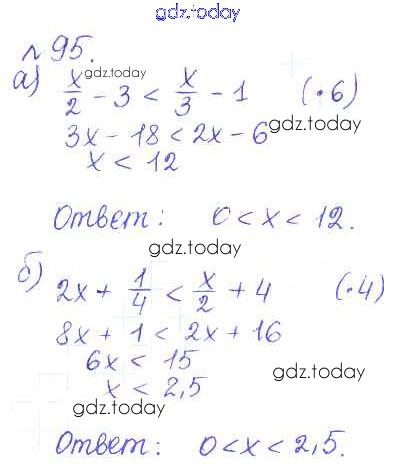 gdz.today
№ 95.
а) x/2 - 3 < x/3 - 1 (·6)
gdz.today
3x - 18 < 2x - 6
gdz.today
x < 12
Ответ: 0 < x < 12.
gdz.today
б) 2x + 1/4 < x/2 + 4 (·4)
8x + 1 < 2x + 16
6x < 15
gdz.today
x < 2,5
gdz.today
Ответ: 0 < x < 2,5.
gdz.today